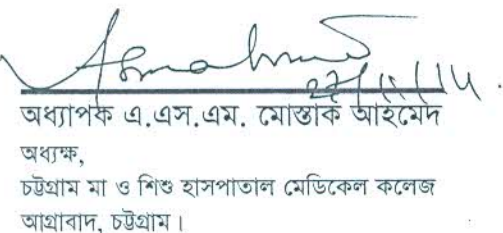 ২৭/১১/১৪
অধ্যাপক এ.এস.এম. মোস্তাক আহমেদ
অধ্যক্ষ,
চট্টগ্রাম মা ও শিশু হাসপাতাল মেডিকেল কলেজ
আগ্রাবাদ, চট্টগ্রাম।